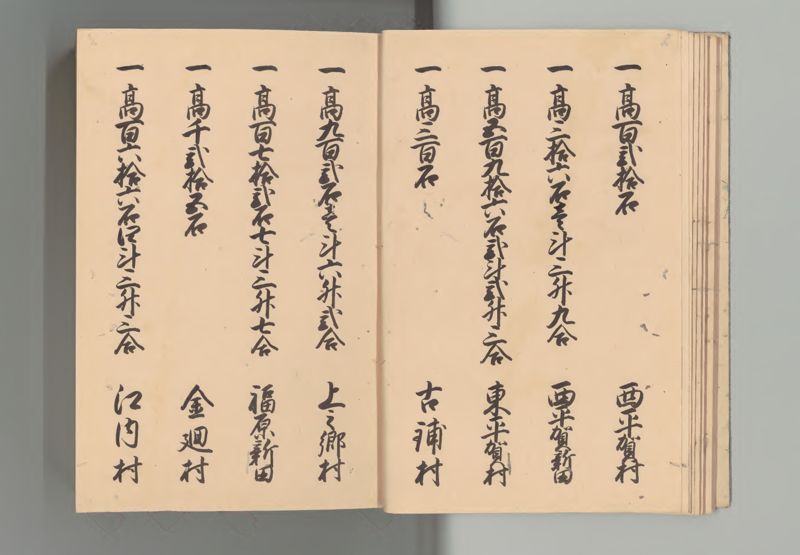 一 高百弐拾石 西平賀村
一 高三拾六石壱斗三升九合 西平賀新田
一 高五百九拾六石弐斗弐升三合 東平賀村
一 高三百石 古鋪村
一 高九百弐石壱斗六升弐合 上之郷村
一 高百七拾弐石七斗三升七合 福原新田
一 高千弐拾五石 金廻村
一 高百六拾六石四斗三升三合 江内村